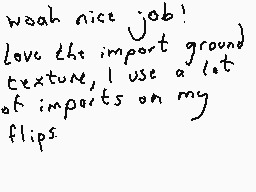 woah nice job!
Love the import ground
texture, I use a lot
of imports on my
flips